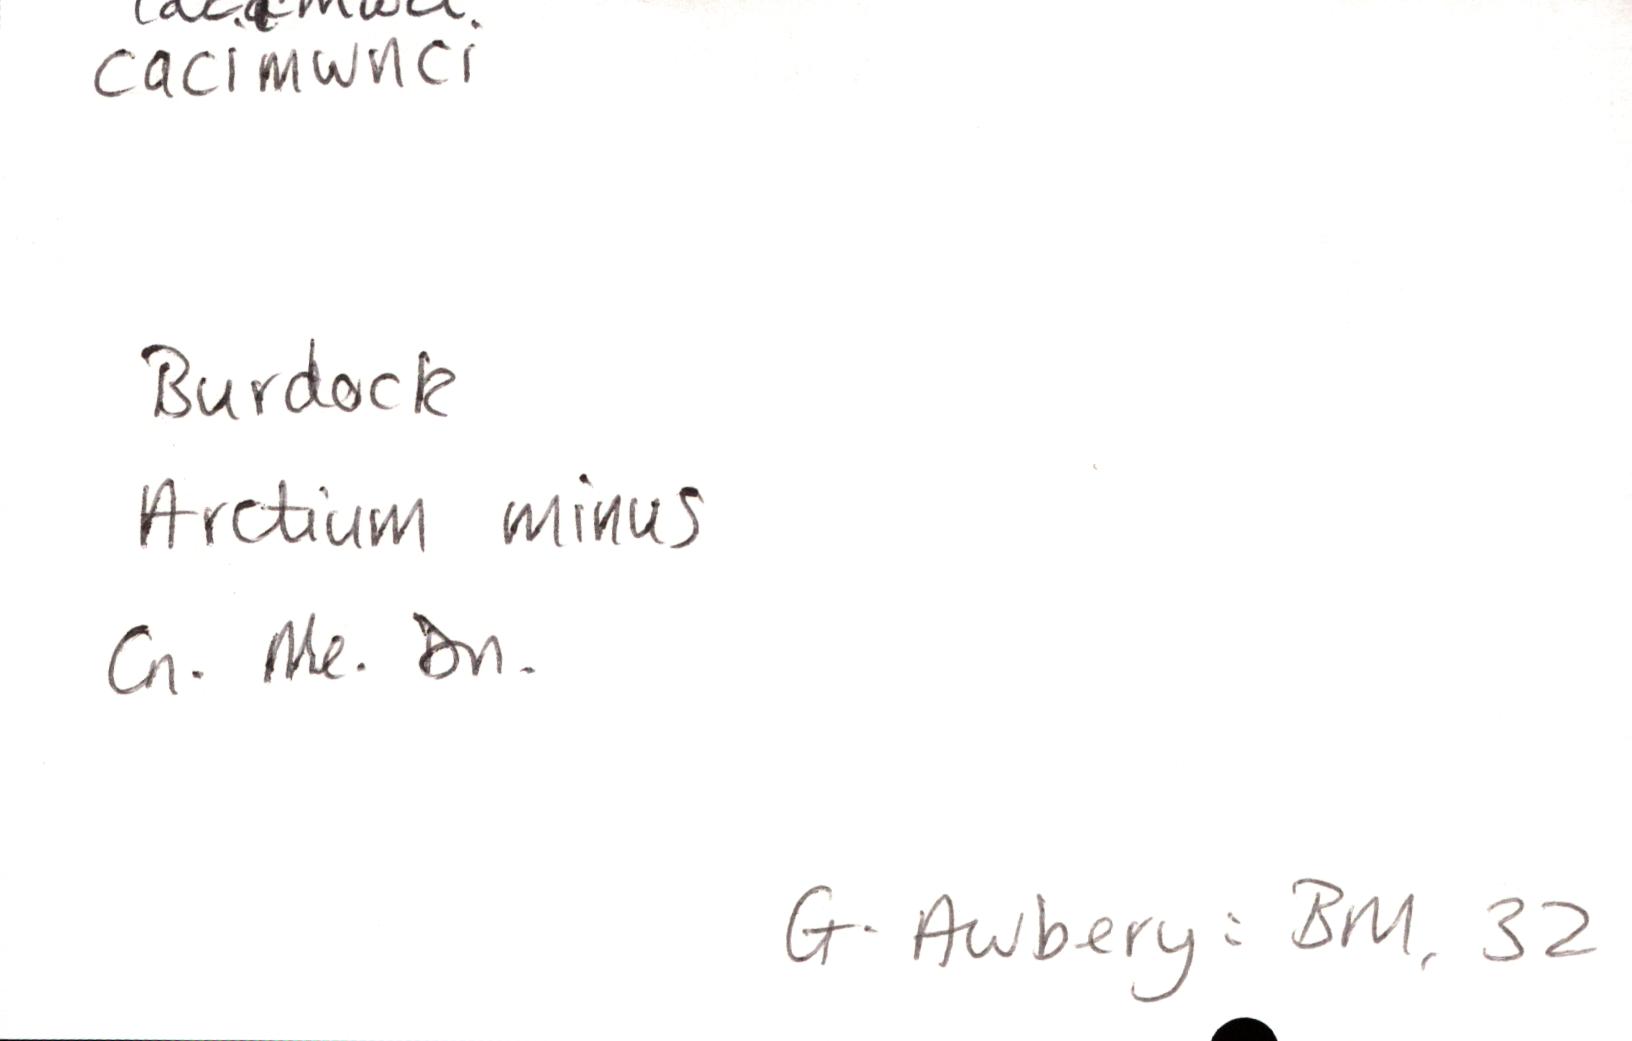 cacimwnci
Burdock
Arctium minus
Cn. Me. Dn.
G. Awbery: BM, 32